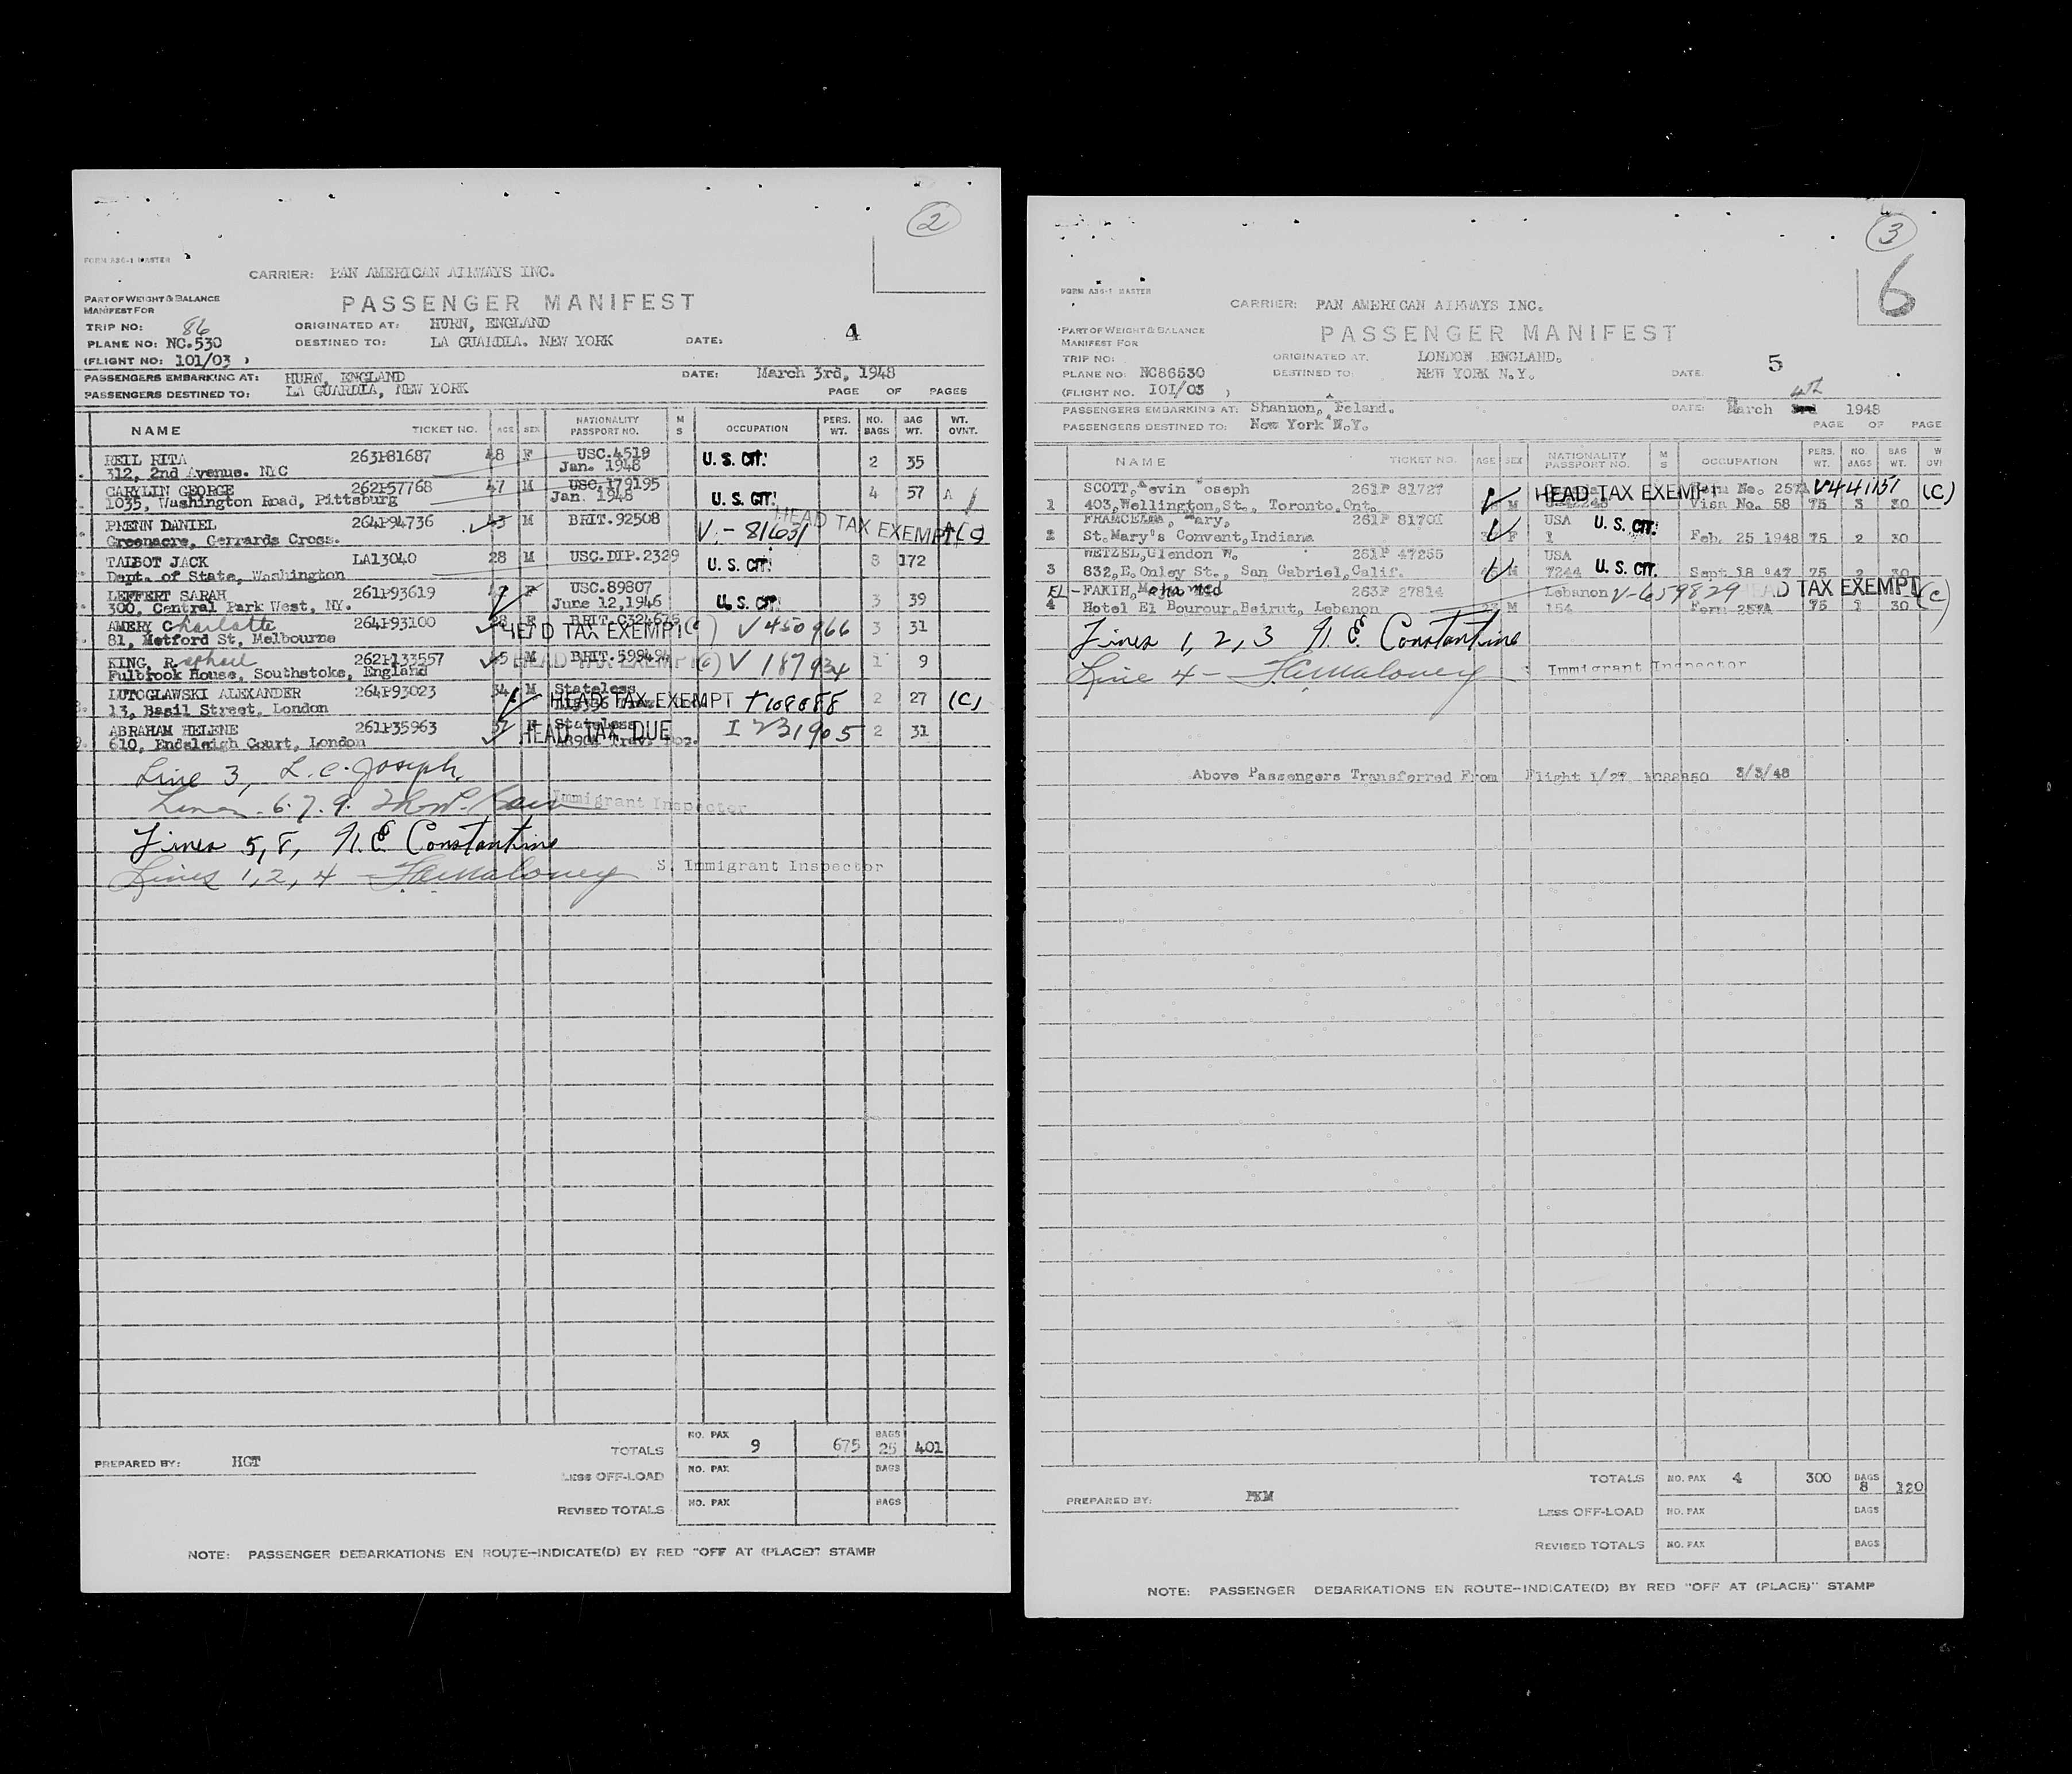 2
FORM ASG-1 MASTER
CARRIER: PAN AMERICAN AIRWAYS INC.
PART OF WEIGHT & BALANCE
MANIFEST FOR
PASSENGER MANIFEST
TRIP NO: 86
ORIGINATED AT: HURN, ENGLAND
4
PLANE NO: NC.530
DESTINED TO: LA GUARDIA. NEW YORK
DATE:
(FLIGHT NO: 101/03 )
PASSENGERS EMBARKING AT: HURN, ENGLAND
DATE: March 3rd, 1948
PASSENGERS DESTINED TO: LA GUARDIA, NEW YORK
PAGE OF PAGES
NAME TICKET NO. AGE SEX NATIONALITY PASSPORT NO. M S OCCUPATION PERS. WT. NO. BAGS BAG WT. WT. OVNT.
REIL RITA 263P81687 48 F USC.4519 U. S. CIT. 2 35
312, 2nd Avenue. NYC Jan. 1948
CARYLIN GEORGE 262P57768 47 M USC.179195 U. S. CIT. 4 57 A
1035, Washington Road, Pittsburg Jan. 1948
PRENN DANIEL 264P94736 43 M BRIT.92508 V.- 81631 HEAD TAX EXEMPT (C)
Greenacre, Gerrards Cross.
TALBOT JACK LA13040 28 M USC.DIP.2329 U. S. CIT. 8 172
Dept. of State, Washington
LEFFERT SARAH 261P93619 F USC.89807 U. S. CIT. 3 39
300, Central Park West, NY. June 12,1946
AMERY Charlotte 264P93100 28 F BRIT.C324675 HEAD TAX EXEMPT (C) V 450966 3 31
81, Metford St, Melbourne
KING, Raphael 262P133557 M BRIT.599494 HEAD TAX EXEMPT (C) V 187934 1 9
Fulbrook House, Southstoke, England
LUTOGLAWSKI ALEXANDER 264P93023 34 M Stateless HEAD TAX EXEMPT 108088 2 27 (C)
13, Basil Street, London
ABRAHAM HELENE 261P35963 Stateless HEAD TAX DUE I 231905 2 31
610, Endsleigh Court, London Trav. Doc.
Line 3, L. C. Joseph
Lines 6. 7. 9.
Immigrant Inspector
Lines 5, 8, N. E Constantine
Lines 1, 2, 4 FCMaloney S. Immigrant Inspector
TOTALS NO. PAX 9 675 BAGS 25 401
PREPARED BY: HGT
LESS OFF-LOAD NO. PAX BAGS
REVISED TOTALS NO. PAX BAGS
NOTE: PASSENGER DEBARKATIONS EN ROUTE-INDICATE(D) BY RED "OFF AT (PLACE)" STAMP
3
6
FORM ASG-1 MASTER
CARRIER: PAN AMERICAN AIRWAYS INC.
PART OF WEIGHT & BALANCE
MANIFEST FOR
PASSENGER MANIFEST
TRIP NO:
ORIGINATED AT. LONDON ENGLAND.
5
PLANE NO: NC86530
DESTINED TO: NEW YORK N.Y.
DATE
(FLIGHT NO. 101/03 )
PASSENGERS EMBARKING AT: Shannon, Feland.
DATE: March 4th 1948
PASSENGERS DESTINED TO: New York N.Y.
PAGE OF PAGE
NAME TICKET NO. AGE SEX NATIONALITY PASSPORT NO. M S OCCUPATION PERS. WT. NO. BAGS BAG WT. W OVI
SCOTT, Kevin Joseph 261P 81727 HEAD TAX EXEMPT Form No. 257A V441151 (C)
1 403,Wellington,St., Toronto.Ont. M Visa No. 58 75 3 30
FRANCELLA, Mary, 261P 81701 USA U. S. CIT.
2 St.Mary's Convent,Indiana F 1 Feb. 25 1948 75 2 30
WETZEL,Glendon W. 261P 47255 USA
3 832,E.Onley St., San Gabriel,Calif. M 7244 U. S. CIT. Sept 18 947 75 2 30
EL-FAKIH, Mohamed 263P 27814 Lebanon V-659829 HEAD TAX EXEMPT (C)
4 Hotel El Bourour,Beirut, Lebanon M 154 Form 257A 75 1 30
Lines 1, 2, 3 N. E Constantine
Line 4 - FCMaloney Immigrant Inspector
Above Passengers Transferred From Flight 1/2? NC88850 3/3/48
TOTALS NO. PAX 4 300 BAGS 8 120
PREPARED BY: PKM
LESS OFF-LOAD NO. PAX BAGS
REVISED TOTALS NO. PAX BAGS
NOTE: PASSENGER DEBARKATIONS EN ROUTE-INDICATE(D) BY RED "OFF AT (PLACE)" STAMP